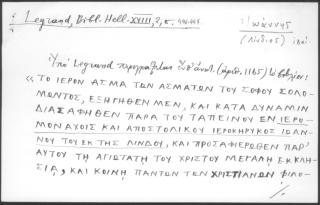 Legrand, Bibl. Hell. XVIII, 2, σ.
Ἰωάννης
(Λίνδιος)
Ὑπὸ Legrand περιγράφεται
(ἀριθ. 1165) τὸ βιβλίον:
« ΤΟ ΙΕΡΟΝ ΑΣΜΑ ΤΩΝ ΑΣΜΑΤΩΝ ΤΟΥ ΣΟΦΟΥ ΣΟΛΟ-
ΜΩΝΤΟΣ, ΕΞΗΓΗΘΕΝ ΜΕΝ, ΚΑΙ ΚΑΤΑ ΔΥΝΑΜΙΝ
ΔΙΑΣΑΦΗΘΕΝ ΠΑΡΑ ΤΟΥ ΤΑΠΕΙΝΟΥ ΕΝ ΙΕΡΟ-
ΜΟΝΑΧΟΙΣ ΚΑΙ ΑΠΟΣΤΟΛΙΚΟΥ ΙΕΡΟΚΗΡΥΚΟΣ ΙΩΑΝ-
ΝΟΥ ΤΟΥ ΕΚ ΤΗΣ ΛΙΝΔΟΥ, ΚΑΙ ΠΡΟΣΑΦΕΡΩΘΕΝ ΠΑΡ'
ΑΥΤΟΥ ΤΗ ΑΓΙΩΤΑΤΗ ΤΟΥ ΧΡΙΣΤΟΥ ΜΕΓΑΛΗ ΕΚΚΛΗ-
ΣΙΑ, ΚΑΙ ΚΟΙΝΗ ΠΑΝΤΩΝ ΤΩΝ ΧΡΙΣΤΙΑΝΩΝ ΦΙΛΟ-